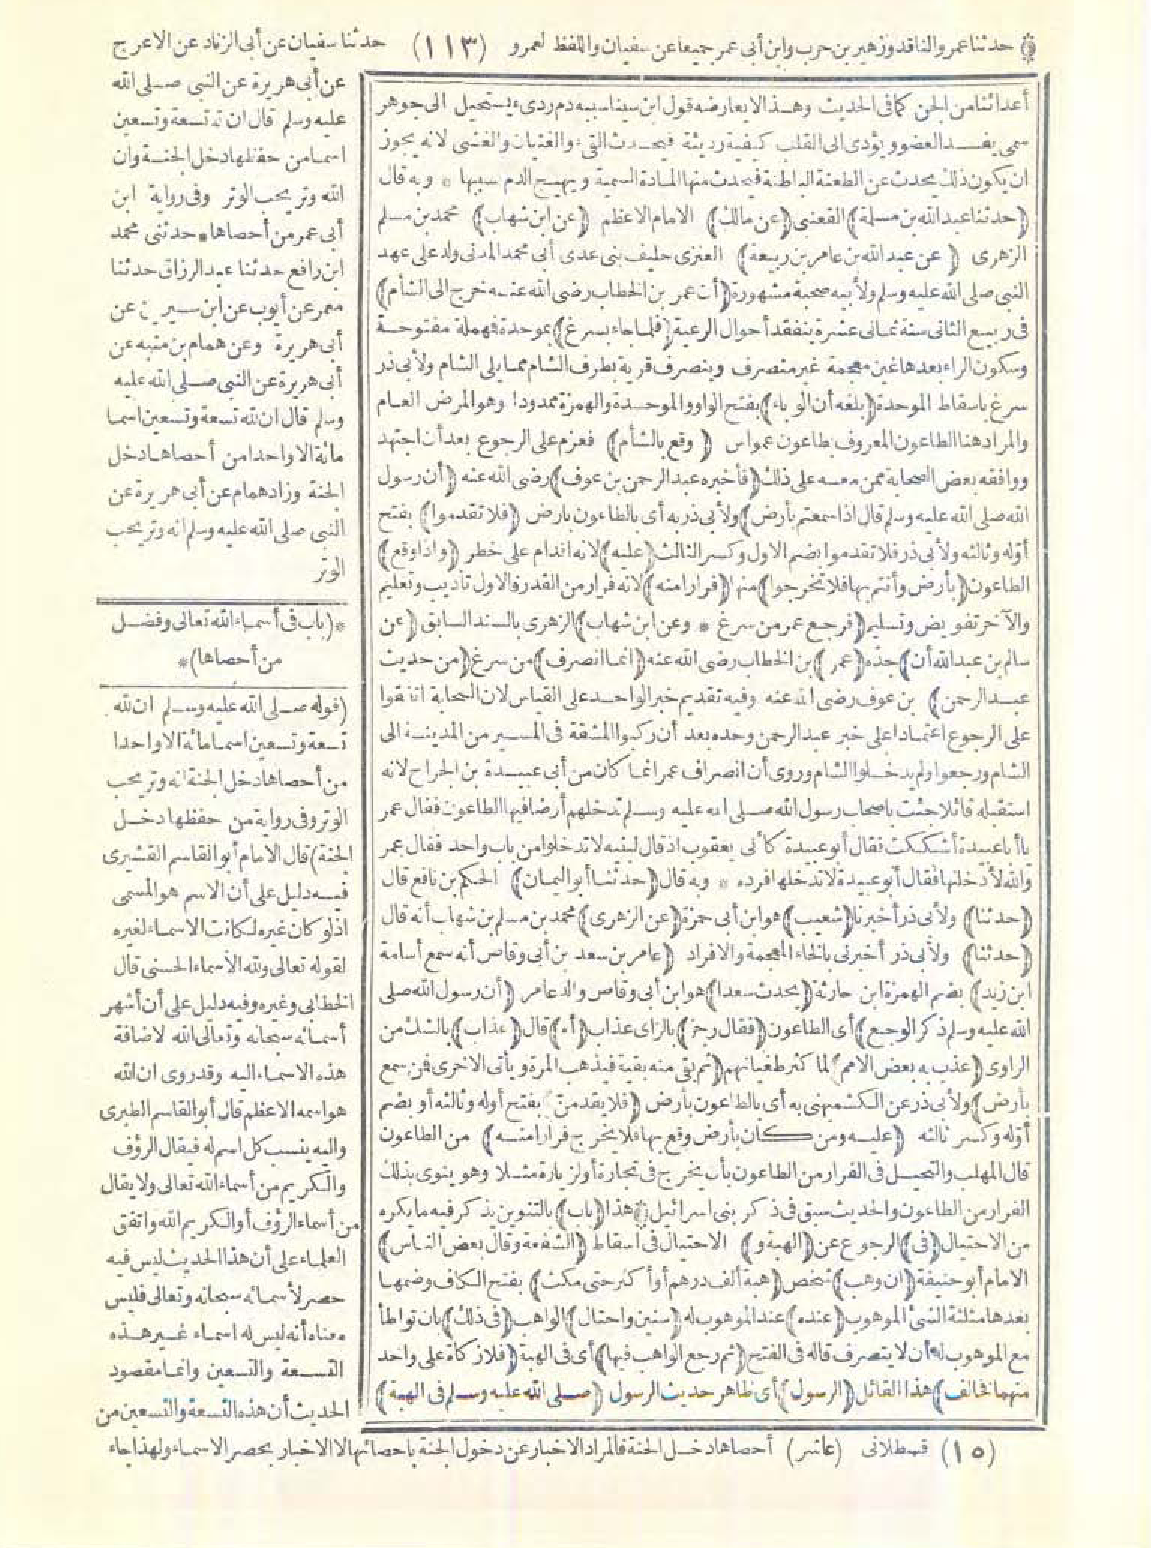 حدثنا عمرو الناقد وزهير بن حرب وابن أبي عمر جميعا عن سفيان واللفظ لعمرو (١١٣) حدثنا سفيان عن أبي الزناد عن الاعرج
عن أبي هريرة عن النبي صلى الله
عليه وسلم قال ان لله تسعة وتسعين
اسما من حفظها دخل الجنة وان
الله وتر يحب الوتر وفي رواية ابن
أبي عمر من أحصاها * حدثني محمد
ابن رافع حدثنا عبد الرزاق حدثنا
معمر عن أيوب عن ابن سيرين عن
أبي هريرة وعن همام بن منبه عن
أبي هريرة عن النبي صلى الله عليه
وسلم قال ان لله تسعة وتسعين اسما
مائة الا واحدا من أحصاها دخل
الجنة وزاد همام عن أبي هريرة عن
النبي صلى الله عليه وسلم انه وتر يحب
الوتر
*(باب في أسماء الله تعالى وفضل
من أحصاها)*
(قوله صلى الله عليه وسلم ان لله
تسعة وتسعين اسما مائة الا واحدا
من أحصاها دخل الجنة انه وتر يحب
الوتر وفي رواية من حفظها دخل
الجنة) قال الامام أبو القاسم القشيري
فيه دليل على أن الاسم هو المسمى
اذ لو كان غيره لكانت الاسماء لغيره
لقوله تعالى ولله الأسماء الحسنى قال
الخطابي وغيره وفيه دليل على أن أشهر
أسمائه سبحانه وتعالى الله لاضافة
هذه الاسماء اليه وقد روى ان الله
هو اسمه الاعظم قال أبو القاسم الطبري
واليه ينسب كل اسم له فيقال الرؤف
والكريم من أسماء الله تعالى ولا يقال
من أسماء الرؤف أو الكريم الله واتفق
العلماء على أن هذا الحديث ليس فيه
حصر لأسمائه سبحانه وتعالى فليس
معناه أنه ليس له اسماء غير هذه
التسعة والتسعين وانما مقصود
الحديث أن هذه التسعة والتسعين من
أعدائنا من الجن كما في الحديث وهذا لا يعارضه قول ابن سينا سببه دم ردىء يستحيل الى جوهر
سمى يفسد العضو ويؤدى الى القلب كيفية رديئة فيحدث القىء والغثيان والغشى لانه يجوز
ان يكون ذلك يحدث عن الطعنة الباطنة فيحدث منها المادة السمية ويهيج الدم بسببها * وبه قال
(حدثنا عبد الله بن مسلمة) القعنبي (عن مالك) الامام الاعظم (عن ابن شهاب) محمد بن مسلم
الزهرى (عن عبد الله بن عامر بن ربيعة) العنزى حليف بني عدى أبي محمد المدني ولد على عهد
النبي صلى الله عليه وسلم ولأبيه صحبة مشهورة (أن عمر بن الخطاب رضى الله عنه خرج الى الشأم)
في ربيع الثاني سنة ثماني عشرة يتفقد أحوال الرعية (فلما جاء بسرغ) بموحدة فمهملة مفتوحة
وسكون الراء بعدها غين معجمة غير منصرف وينصرف قرية بطرف الشام مما يلى الشام ولأبي ذر
سرغ باسقاط الموحدة (بلغه أن الوباء) بفتح الواو والموحدة والهمزة ممدودا وهو المرض العام
والمراد هنا الطاعون المعروف بطاعون عمواس (وقع بالشأم) فعزم على الرجوع بعد أن اجتهد
ووافقه بعض الصحابة ممن معه على ذلك (فأخبره عبد الرحمن بن عوف) رضى الله عنه (أن رسول
الله صلى الله عليه وسلم قال اذا سمعتم بأرض) ولأبي ذر به أى بالطاعون بارض (فلا تقدموا) بفتح
أوله وثالثه ولأبي ذر فلا تقدموا بضم الاول وكسر الثالث (عليه) لانه اقدام على خطر (واذا وقع)
الطاعون (بأرض وأنتم بها فلا تخرجوا) منها (فرارا منه) لانه فرار من القدر فالاول تأديب وتعليم
والآخر تفويض وتسليم (فرجع عمر من سرغ * وعن ابن شهاب) الزهرى بالسند السابق (عن
سالم بن عبد الله أن) جده (عمر) بن الخطاب رضى الله عنه (انما انصرف) من سرغ (من حديث
عبد الرحمن) بن عوف رضى الله عنه وفيه تقديم خبر الواحد على القياس لان الصحابة اتفقوا
على الرجوع اعتمادا على خبر عبد الرحمن وحده بعد أن ركبوا المشقة في المسير من المدينة الى
الشام ورجعوا ولم يدخلوا الشام وروى أن انصراف عمر انما كان من أبي عبيدة بن الجراح لانه
استقبله قائلا جئت باصحاب رسول الله صلى الله عليه وسلم تدخلهم أرضا فيها الطاعون فقال عمر
يا أبا عبيدة أشككت فقال أبو عبيدة كأني يعقوب اذ قال لبنيه لا تدخلوا من باب واحد فقال عمر
والله لأدخلنها فقال أبو عبيدة لا تدخلها فرده * وبه قال (حدثنا أبو اليمان) الحكم بن نافع قال
(حدثنا) ولأبي ذر أخبرنا (شعيب) هو ابن أبي حمزة (عن الزهرى) محمد بن مسلم بن شهاب أنه قال
(حدثنا) ولأبي ذر أخبرني بالخاء المعجمة والافراد (عامر بن سعد بن أبي وقاص أنه سمع أسامة
ابن زيد) بضم الهمزة ابن حارثة (يحدث سعدا) هو ابن أبي وقاص والد عامر (أن رسول الله صلى
الله عليه وسلم ذكر الوجع) أى الطاعون (فقال رجز) بالزاى عذاب (أو) قال (عذاب) بالشك من
الراوى (عذب به بعض الامم) لما كثر طغيانهم (ثم بقى منه بقية فيذهب المرة ويأتى الاخرى فمن سمع
بأرض) ولأبي ذر عن الكشميهنى به أى بالطاعون بأرض (فلا يقدمن) بفتح أوله وثالثه أو بضم
أوله وكسر ثالثه (عليه ومن كان بأرض وقع بها فلا يخرج فرارا منه) من الطاعون
قال المهلب والتحيل في الفرار من الطاعون بأن يخرج في تجارة أو لزيارة مثلا وهو ينوى بذلك
الفرار من الطاعون والحديث سبق في ذكر بني اسرائيل * هذا (باب) بالتنوين يذكر فيه ما يكره
من الاحتيال (في) الرجوع عن (الهبة و) الاحتيال في اسقاط (الشفعة وقال بعض الناس)
الامام أبو حنيفة (ان وهب) شخص (هبة ألف درهم أو أكثر حتى مكث) بفتح الكاف وضمها
بعدها مثلثة الشئ الموهوب (عنده) عند الموهوب له (سنين واحتال) الواهب (في ذلك) بان تواطأ
مع الموهوب له أن لا يتصرف قاله في الفتح (ثم رجع الواهب فيها) أى في الهبة (فلا زكاة على واحد
منهما فخالف) هذا القائل (الرسول) أى ظاهر حديث الرسول (صلى الله عليه وسلم في الهبة)
(١٥) قسطلاني (عاشر) أحصاها دخل الجنة فالمراد الاخبار عن دخول الجنة باحصائها لا الاخبار بحصر الاسماء ولهذا جاء